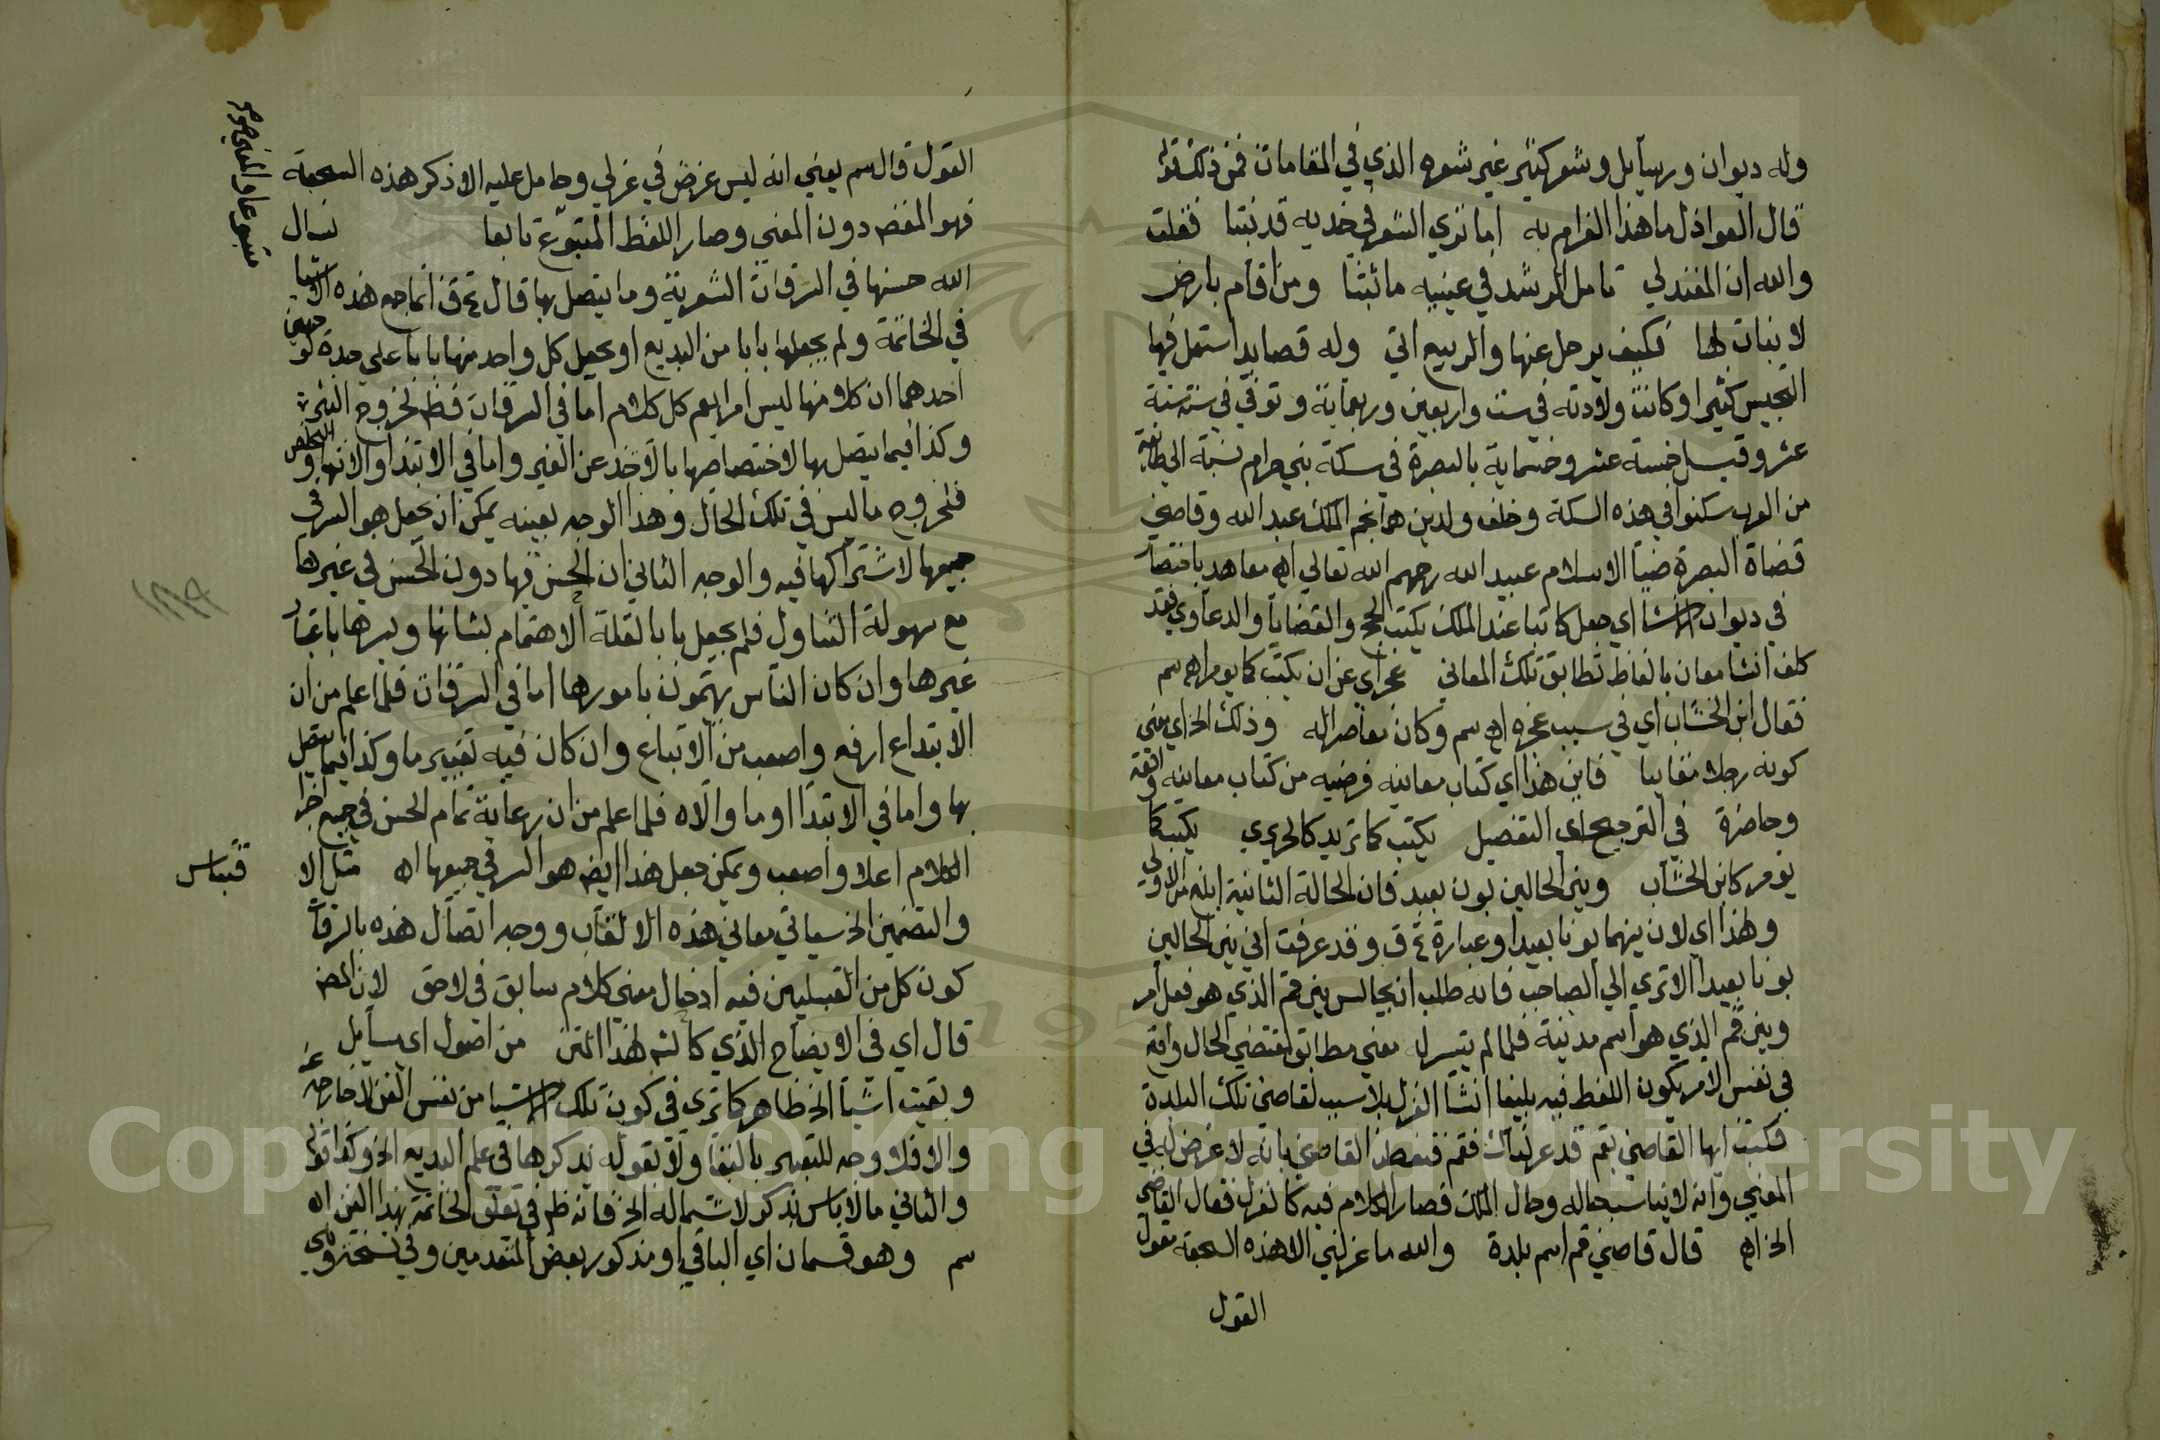 وله ديوان ورسآيل وشعر كثير غير شعره الذي في المقامات فمن ذلك قوله
قال العواذل ما هذا الغرام به اما تري الشعر في خديه قد نبتا فقلت
والله ان المفند لي تامل الرشد في عينيه ما ثبتا ومن اقام بارض
لا نبات لها فكيف يرحل عنها والربيع اتي وله قصايد استعمل فيها
التجنيس كثيرا وكانت ولادته في ست واربعين وربعماية وتوفي في سنة ستة
عشر وقيل خمسة عشر وخمماية بالبصرة في سكة بني حرام نسبة الي طائفة
من العرب سكنوا في هذه السكة وخلف ولدين هما نجم الملك عبد الله وقاضي
قضاة البصرة ضيآ الاسلام عبيد الله رحمهم الله تعالي اه معاهد باختصار
في ديوان الانشا اي جعل كاتبا عند الملك يكتب الحجج والقضايا والدعاوي فقد
كلف انشا معان بالفاظ تطابق تلك المعاني عجز اي عن ان يكتب كما يومر اه سم
فقال ابن الخشاب اي في سبب عجزه اه سم وكان معاصر اله وذلك الخ اي معني
كونه رجلا مقاماتيا فاين هذا اي كتاب معانيه فرضيه من كتاب معانيه واقعة
وحاضرة في الترجيح اي التفضيل يكتب كما تريد كالحريري يكتب كما
يومر كابن الخشاب وبين الحالين بون بعيد فان الحالة الثانية ابلغ من الاولي
ولهذا اي لان بينهما بونا بعيدا وعبارة ع ق وقد عرفت اني بين الحالين
بونا بعيدا الا تري الي الصاحب فانه طلب ان يجانس بين قم الذي هو فعل امر
وبين قم الذي هو اسم مدينة فلما لم يتيسر له معني مطابق لمقتضي الحال واقع
في نفس الامر يكون اللفظ فيه بليغا انشأ العزل بلا سبب لقاضي تلك البلدة
فكتب ايها القاضي بقم قد عزلناك فقم فتفطن القاضي بانه لا غرض له في
المعني وانه لا يناسب حاله وحال الملك فصار الكلام فيه كالهزل فقال القاضي
الخ اه قال قاضي قم اسم بلدة والله ما عزلني الا هذه السجعة مقول
القول
القول قال سم يعني انه ليس غرض في عزلي وحامل عليه الا ذكر هذه السجعة
فهو المقصد دون المعني وصار اللفظ المتبوع تابعا نسال
متبوعا والمعني
الله حسنها في السرقات الشعرية وما يتصل بها قال ع ق انما جمع هذه الاشيا
في الخاتمة ولم يجعلها بابا من البديع او يجعل كل واحد منها بابا علي حدة لوجهين
احدهما ان كلا منها ليس امرا يعم كل كلام اما في السرقات فظ لخروج النثر
وكذا فيما يتصل بها لاختصاصها بالاخذ عن الغير واما في الابتدا والانتها والتخلص
فلخروج ما ليس في تلك الحال وهذا الوجه بعينه يمكن ان يجعل هو السر في
جميعها لاشتراكها فيه والوجه الثاني ان الحسن فيها دون الحسن في غيرها
مع سهولة التناول فلم يجعل بابا لقلة الاهتمام بشانها وسرها باعتبار
غيرها وان كان الناس يهتمون بامورها اما في السرقات فلما اعلم من ان
الابتداع ارفع واصعب من الاتباع وان كان فيه تغيير ما وكذا فيما يتصل
بها واما في الابتدا وما والاه فلما علم من ان رعاية تمام الحسن في جميع اجزا
الكلام اعلا واصعب ويمكن جعل هذا ايض هو السر في جميعها اه مثل الا
قتباس
والتضمين الخ سياتي معاني هذه الالقاب ووجه اتصال هذه بالسرقات
كون كل من القبيلين فيه ادخال معني كلام سابق في لاحق لان المص
قال اي في الايضاح الذي كالشرح لهذا المتن من اصول اي مسآيل
وبقيت اشيآ الخ ظاهر كما تري في كون تلك الاشيا من نفس الفن لا خارجه عنه
والا فلا وجه للتعبير بالبقآ ولا لقوله يذكرها في علم البديع الخ وكذا قوله
والثاني ما لا باس بذكره لاشتماله الخ فانه ظهر في تعلق الخاتمة بهذا الفن اه
سم وهو قسمان اي الباقي او مذكور بعض المتقدمين وفي نسخة وهي